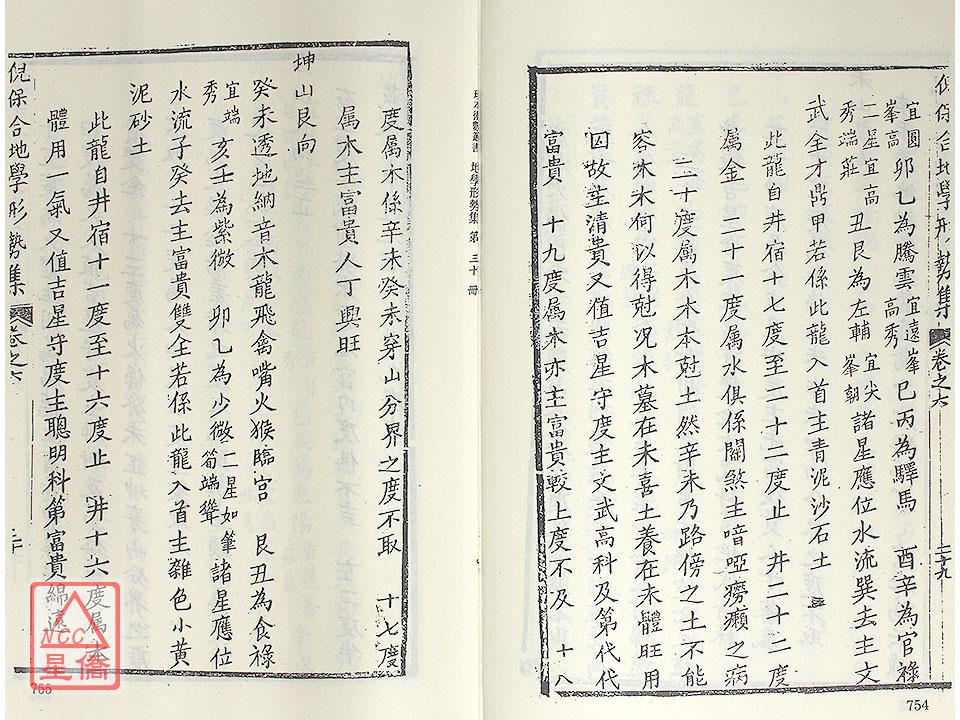 倪保合地學形勢集 卷之六 二十九
宜圓峯高 卯乙為騰雲 宜遠峯高秀 巳丙為驛馬 酉辛為官祿
二星宜高秀端莊 丑艮為左輔 宜尖峯朝 諸星應位水流巽去主文
武全才鼎甲若係此龍入首主青泥沙石土
此龍自井宿十七度至二十二度止 井二十二度
属金 二十一度属水俱係關煞主喑啞癆癩之病
二十度属木木本尅土然辛未乃路傍之土不能
容木木何以得尅况木墓在未喜土養在未體旺用
囚故主清貴又值吉星守度主文武高科及第代代
富貴 十九度属木亦主富貴較上度不及 十八
754
地學形勢集 第三十冊
度属木係辛未癸未穿山分界之度不取 十七度
属木主富貴人丁興旺
坤山艮向
癸未透地納音木龍飛禽嘴火猴臨宫 艮丑為食祿
宜端秀 亥壬為紫微 卯乙為少微 二星如筆筍端聳 諸星應位
水流子癸去主富貴雙全若係此龍入首主雜色小黄
泥砂土
此龍自井宿十一度至十六度止 井十六度属木
體用一氣又值吉星守度主聰明科第富貴綿遠
倪保合地學形勢集 卷之六 三十
755
NCC
星僑